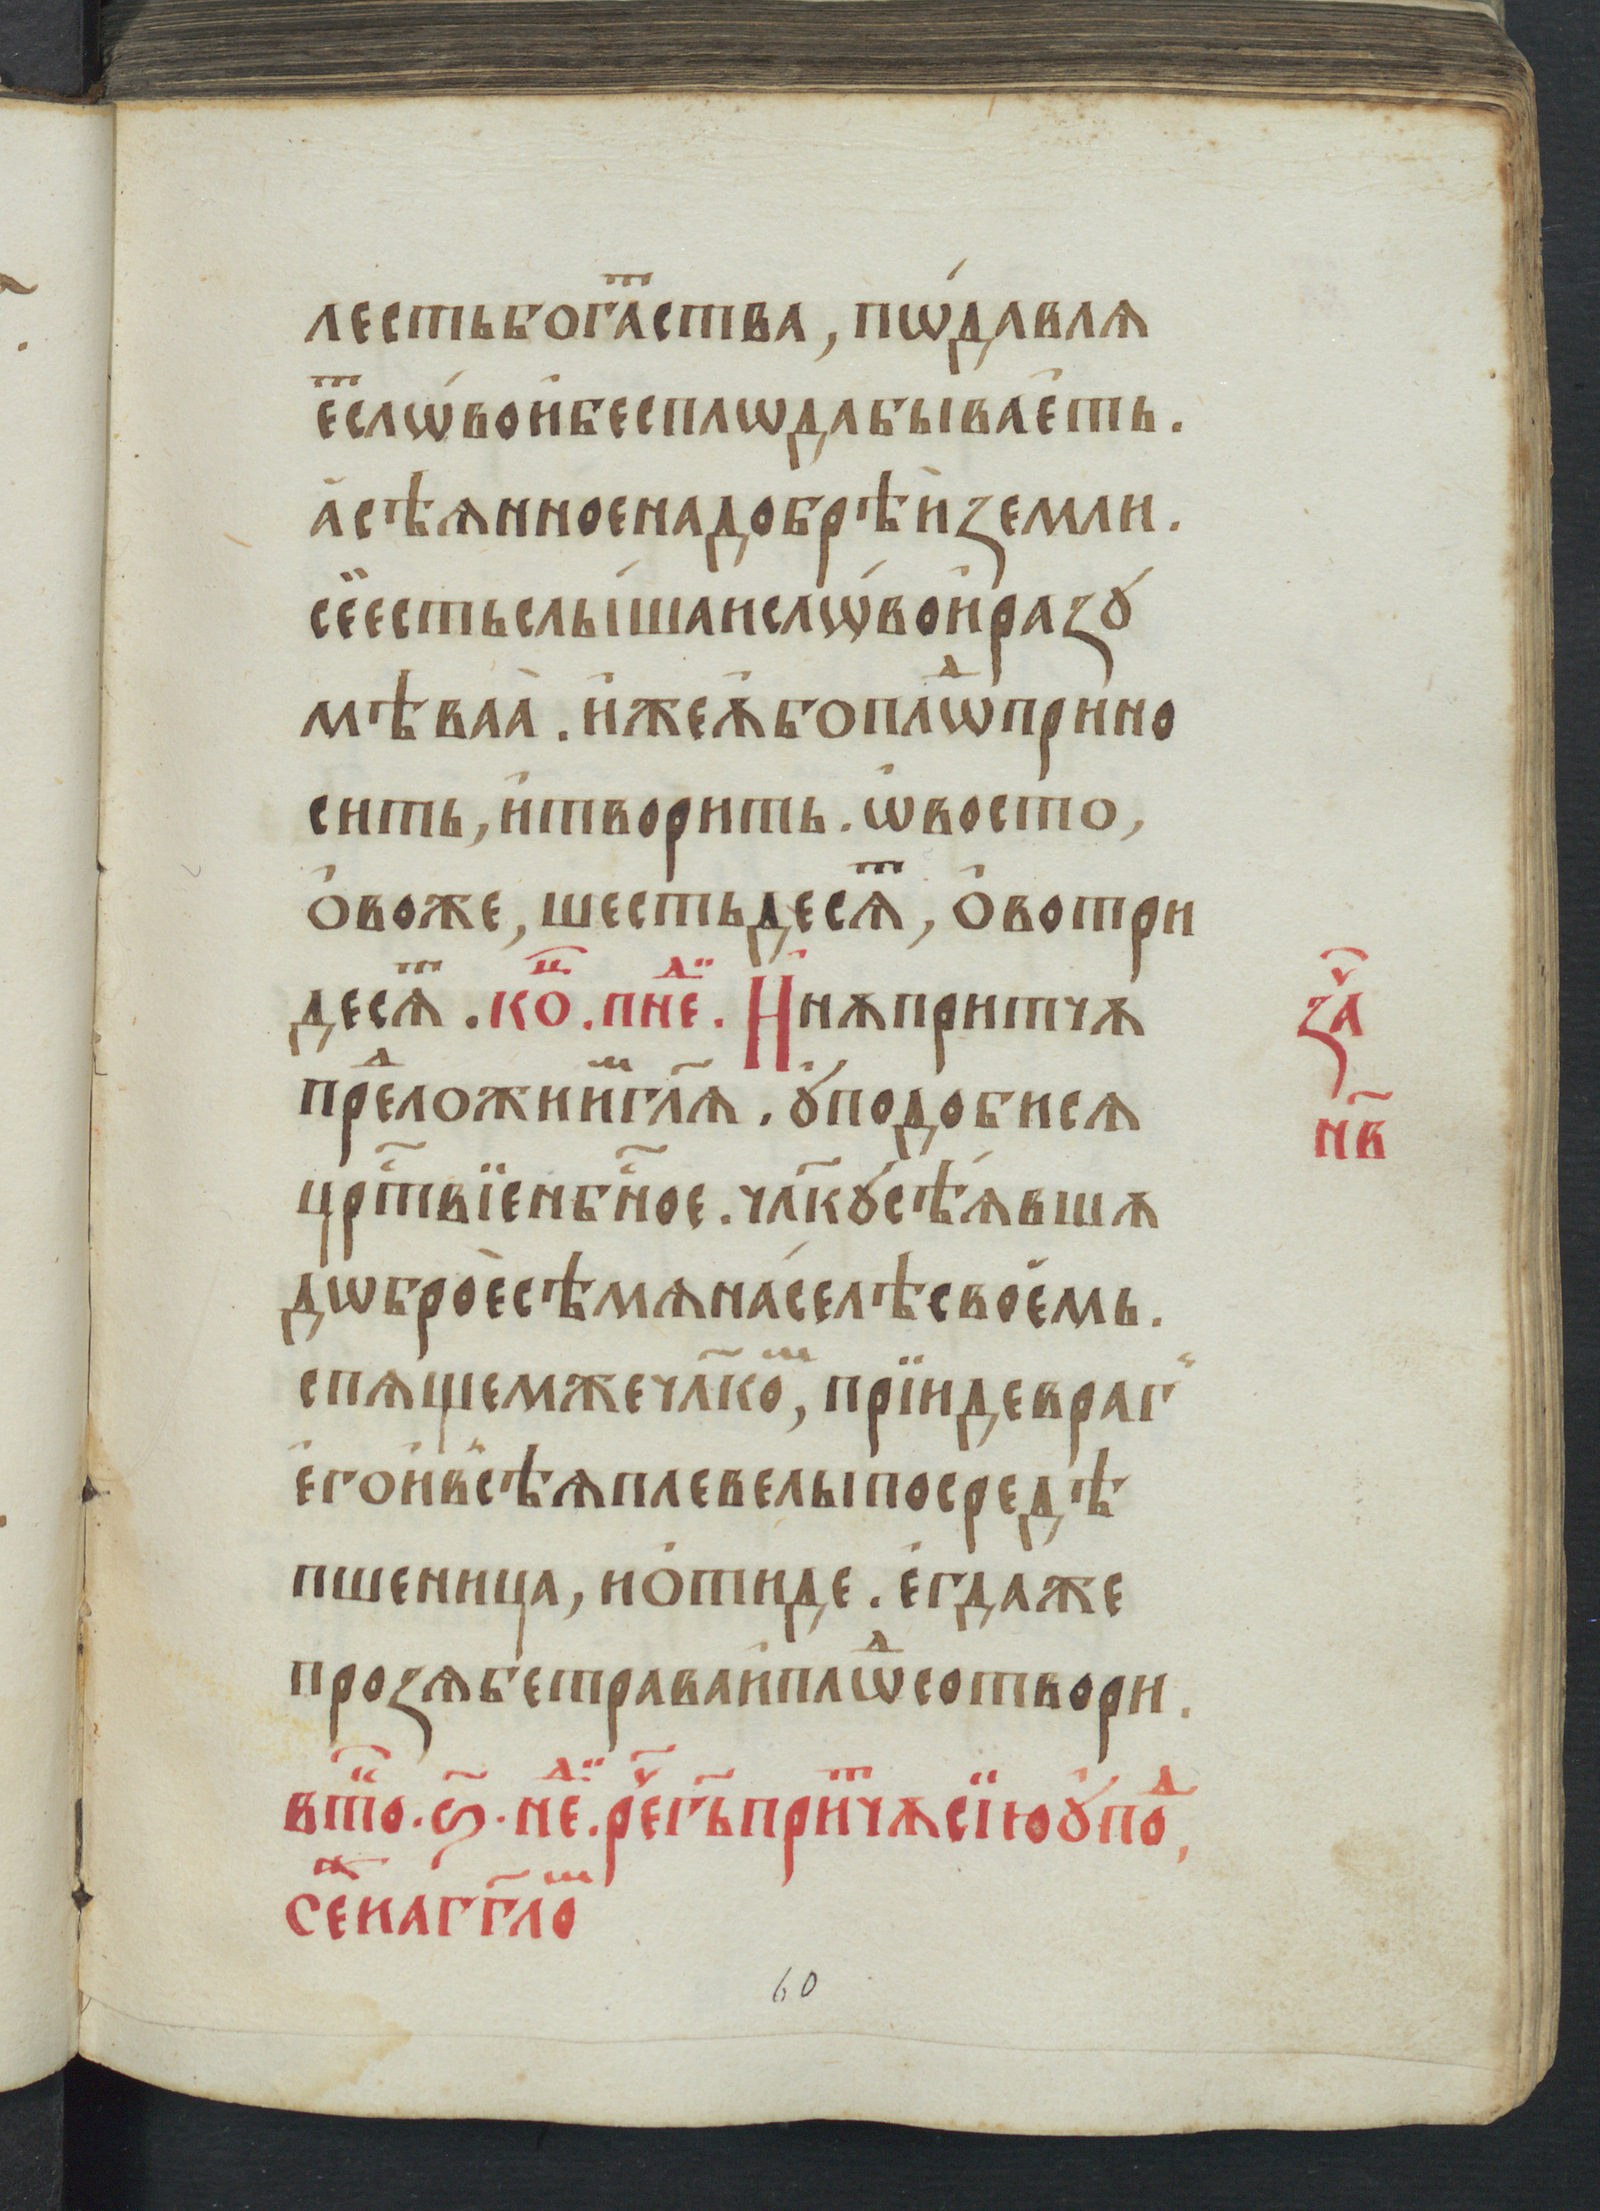 лестьбогⷮаства, пѡ́давлѧ
еⷮслѡ́вои҆бесплѡдабыва́еть.
а҆сѣѧнноенадобрѣ́иземли.
се́естьслы́шаислѡ́вои҆разꙋ
мѣваа̀. и҆жеѧ҆боплѡⷣприно
сить, и҆творить. ѡ҆восто,
о҆воже, шестьдесѧⷮ, о҆вотри
десѧⷮ. коⷰ҇. пнⷣе. Инѫпритчѫ
преⷣложииⷨгл҃ѧ. ꙋ҆подобисѧ
црⷭ҇твїенбⷭ҇ное. чл҃кꙋсѣѧ́вшѫ
дѡброѐсѣмѧна́селѣсвоѐмь.
спѧщемжечл҃коⷨ, прїидевраг
е҆гои҆всѣѧплевелыпосредѣ
пшеница, ио҆тиде. е҆гдаже
прозѧбетраваи҆плѡⷣсотвори.
втⷭ҇о. ѕ҃. нⷣе. реⷱ҇гь҃приⷮчѫсїюꙋ҆поⷣ,
сеⷤиагг҃лоⷨ
заⷱ҇
нв҃
60